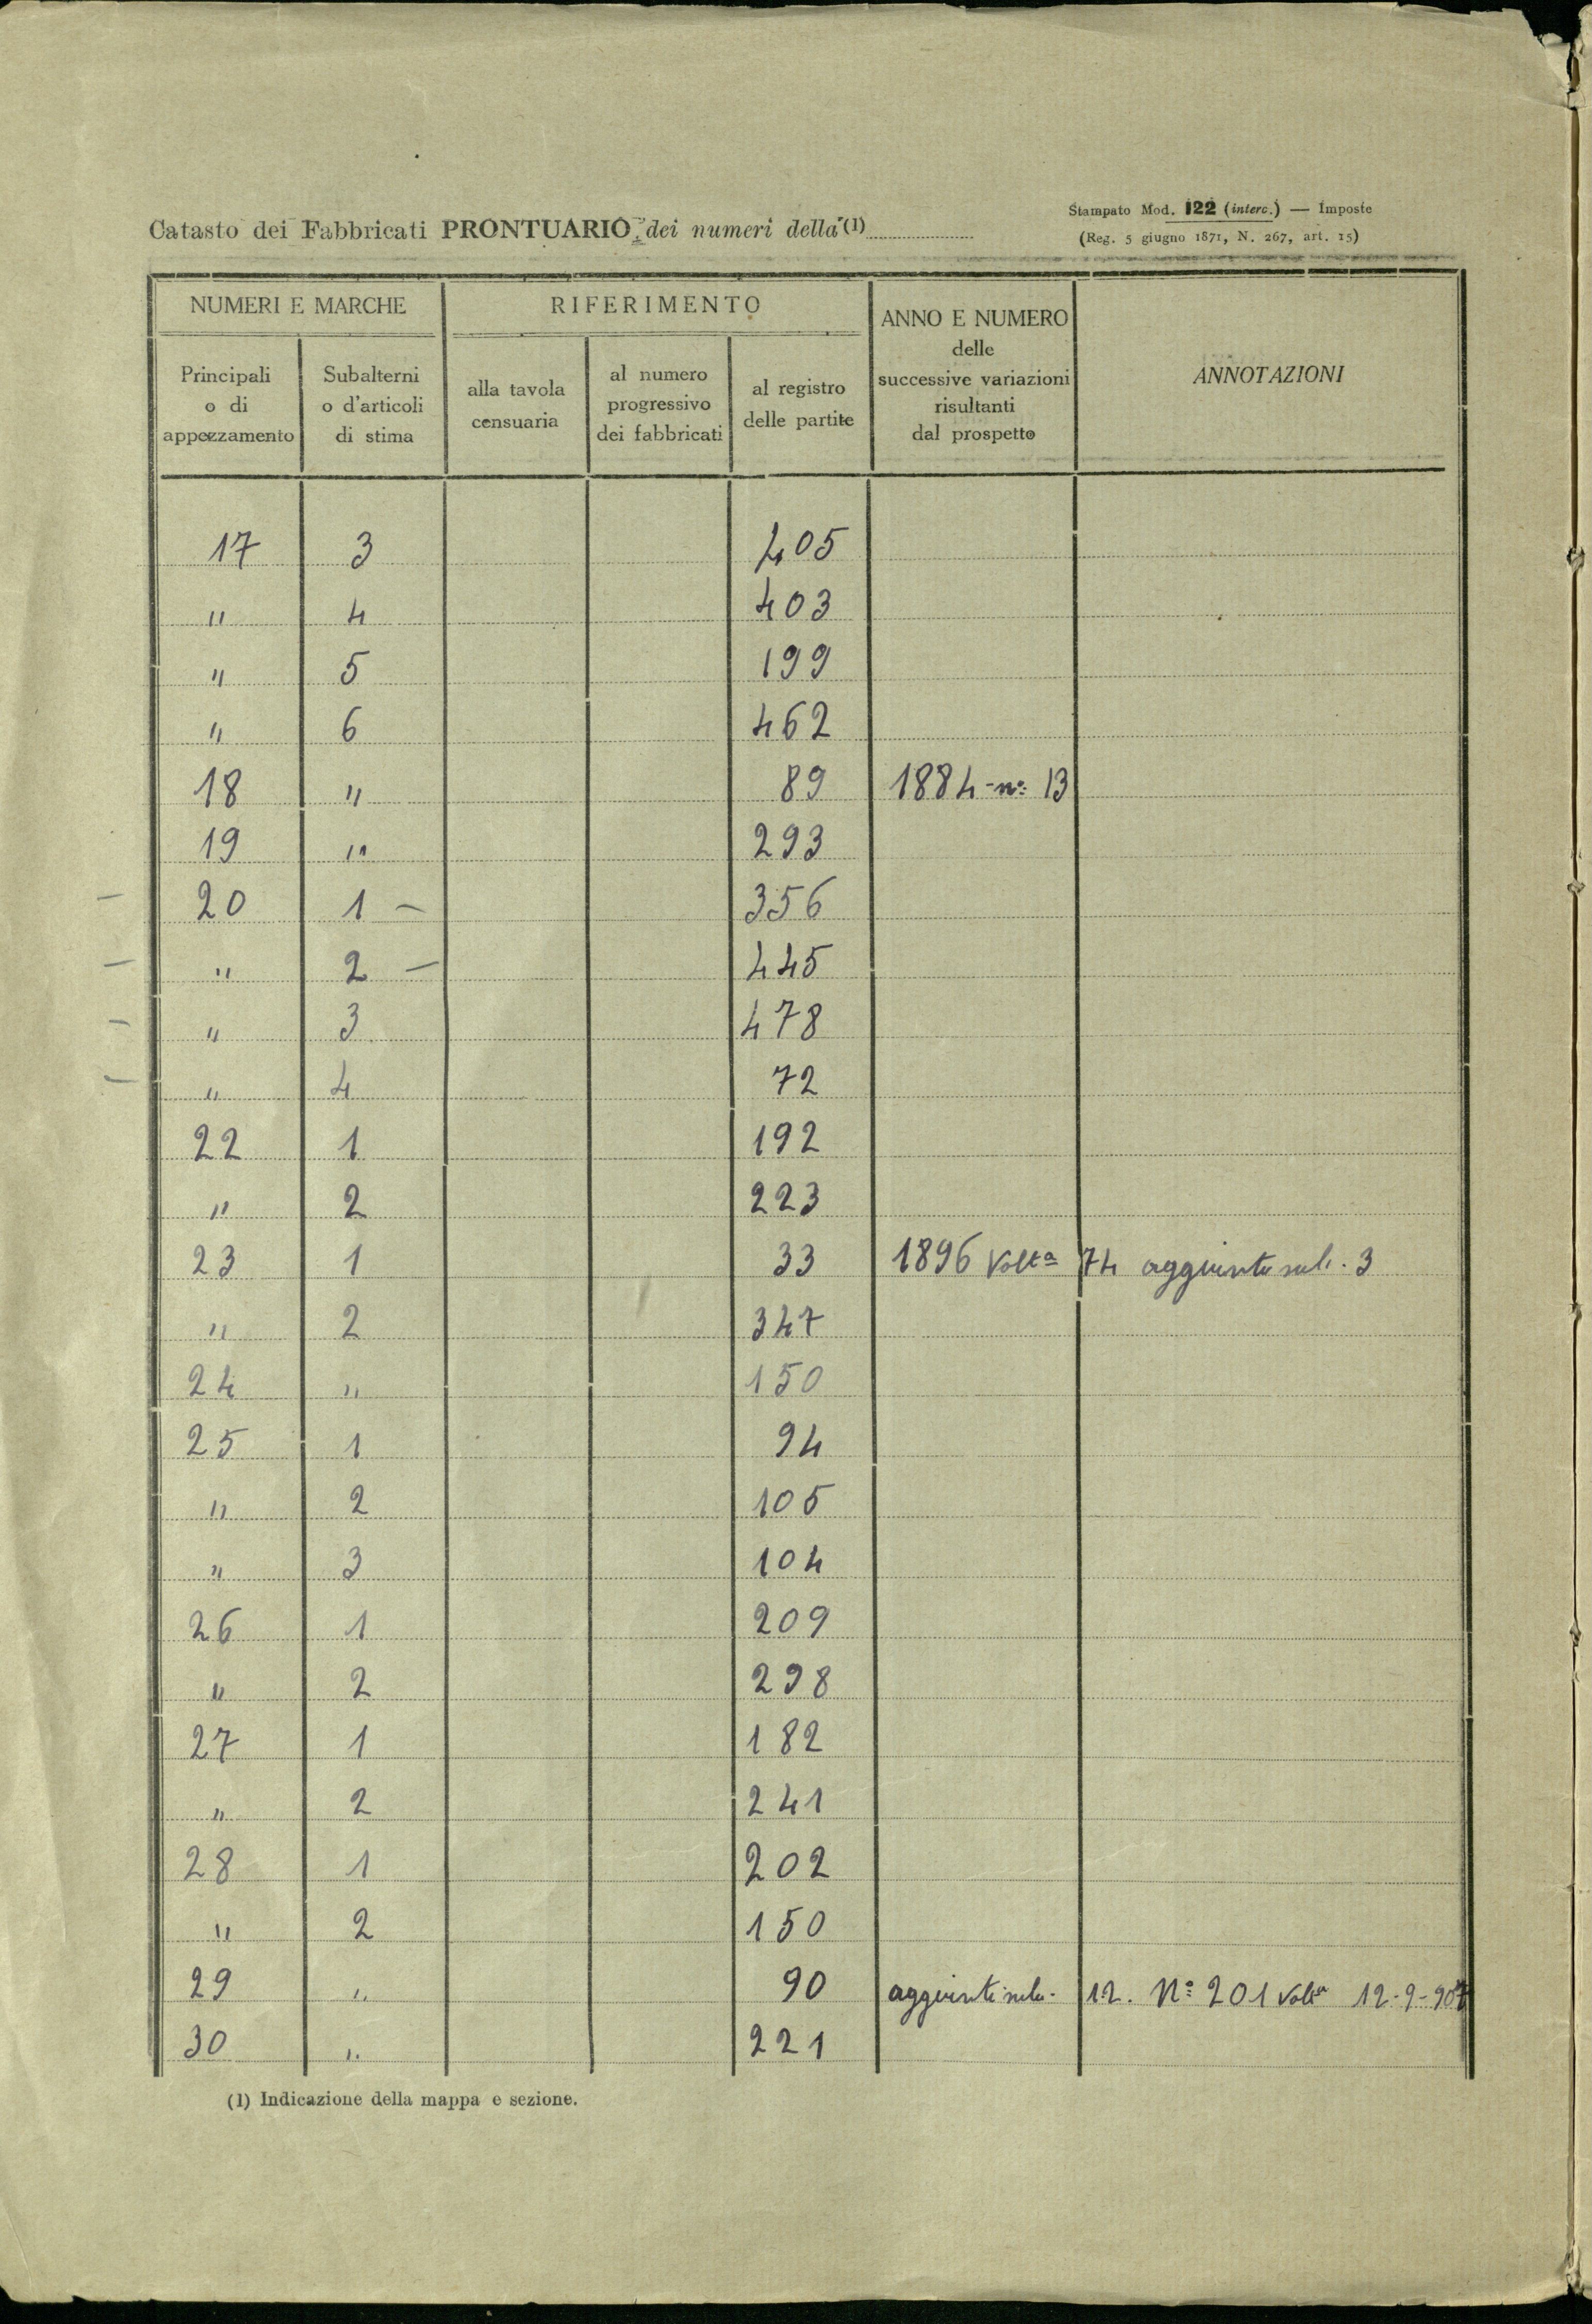 Catasto dei Fabbricati PRONTUARIO dei numeri della (1)
Stampato Mod. 122 (interc.) — Imposte
(Reg. 5 giugno 1871, N. 267, art. 15)
NUMERI E MARCHE
RIFERIMENTO
ANNO E NUMERO
delle
successive variazioni
risultanti
dal prospetto
ANNOTAZIONI
Principali
o di
appezzamento
Subalterni
o d'articoli
di stima
alla tavola
censuaria
al numero
progressivo
dei fabbricati
al registro
delle partite
17 3 405
" 4 403
" 5 199
" 6 462
18 " 89 1884 - nº 13
19 " 293
20 1 — 356
" 2 — 445
" 3 478
" 4 72
22 1 192
" 2 223
23 1 33 1896 Volta 74 aggiunto sub. 3
" 2 347
24 " 150
25 1 94
" 2 105
" 3 104
26 1 209
" 2 298
27 1 182
" 2 241
28 1 202
" 2 150
29 " 90 aggiunti 12. Nº 201 Volta 12-9-907
30 " 221
(1) Indicazione della mappa e sezione.